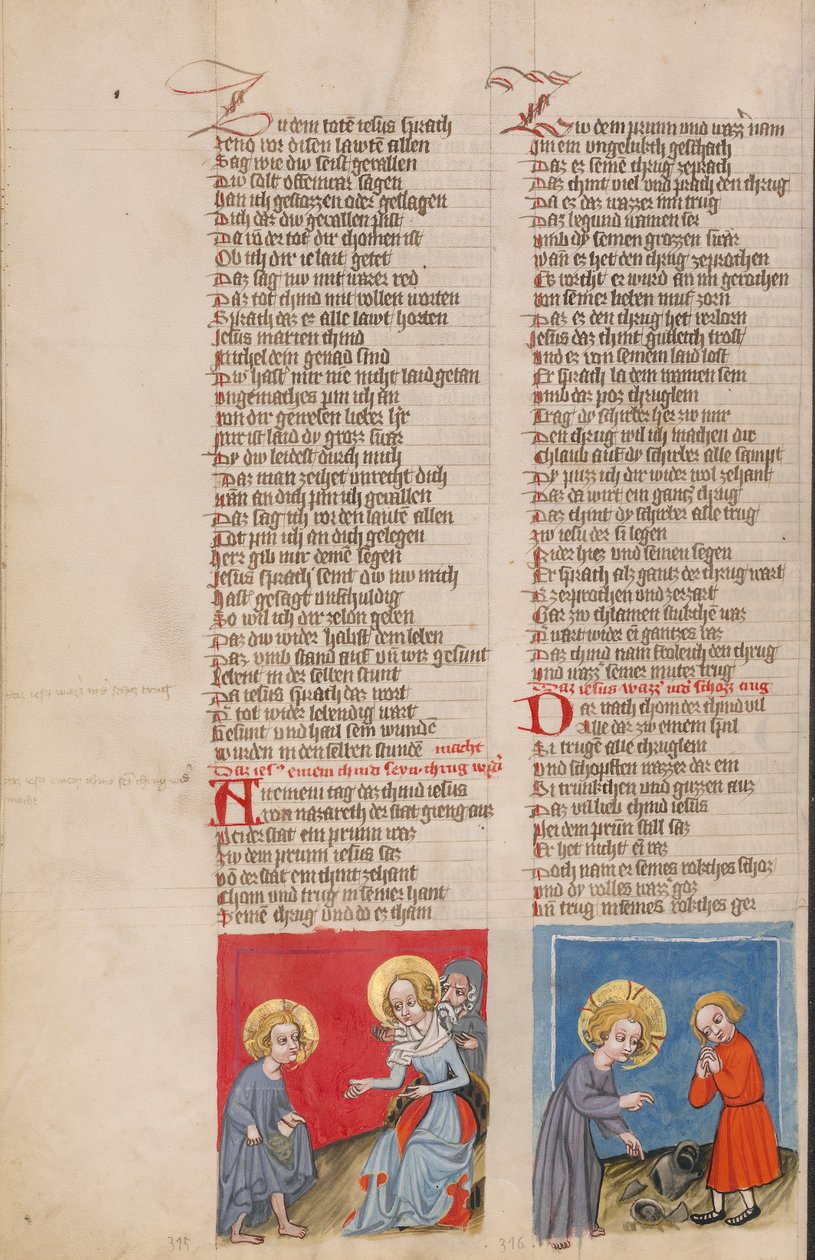 Zu dem toten iesus sprach
Zeno vor disen lawten allen
Sag wie dw seist gevallen
Dw solt offenwar sagen
han ich gestozzen oder geslagen
Dich dar dw gevallen pist
Da von der tot dir chomen ist
Ob ich dir ie lait getet
Daz sag nw mit warer red
Daz tot chind mit vollen worten
Sprach daz es alle lawt horten
Jesus marien chind
Michel dein genad sind
Dw hast mir nie nicht laid getan
ungemaches pin ich an
von dir genesen lieber h'r
Mir ist laid dy grozz swar
Dy dw leidest durch mich
Daz man zeihet unrecht dich
wann an dich pin ich gevallen
Daz sag ich vor den lauten allen
Tot pin ich an dich gelegen
herr gib mir deine segen
Jesus sprach seint dw nw mich
hast gesagt unschuldig
So wil ich dir zelon geben
Daz dw wider habist dem leben
Daz umb stand auf un wis gesunt
Lebent in der selben stunt
Da iesus sprach daz wort
D' tot wider lebendig wart
Gesunt und hail sein wunde
wurden in den selben stunde macht
Daz ies' einem chind seyn chrug wid'
An einem tag daz chind iesus
von nazareth der stat gieng aus
Pei der stat ein prunn waz
Zw dem prunn iesus saz
von der stat ein chint zehant
Chom und trug in seiner hant
Seine chrug und do ez cham
315
Zw dem prunn und wazz' nam
Jm ein ungelukch geschach
Daz ez seine chrug zeprach
Daz chint viel und prach den chrug
Da ez daz wazzer inn trug
Daz begund wainen ser
umb dy seinen grozzen swar
wan es het den chrug zeprochen
Es vorcht er wurd an im gerochen
von seiner lieben mut' zorn
Daz ez den chrug het verlorn
Jesus daz chint gutleich trost
und ez von seinem laid lost
Er sprach la dein wainen sein
umb daz poz chruglein
Trag dy scherber her zw mir
Den chrug wil ich machen dir
Chlaub auf dy scherber alle sampt
Dy puzz ich dir wider wol zehant
Daz da wirt ein gantz chrug
Daz chint dy scherber alle trug
zw iesu der si legen
Pider hiez und seinen segen
Er sprach alz gantz der chrug wart
D' zerprochen und zerzart
Gar zw chlainen stukchen waz
D' wart wider ein gantzes vaz
Daz chind nam froleich den chrug
und wazz' seiner muter trug
Daz iesus wazz' in d' schozz trug
Dar nach chom der chind vil
Alle dar zw einem spil
Si trugen alle chruglein
und schopften wazzer dar ein
Si trunkchen und guzzen auz
Daz vil lieb chind iesus
Pei dem prun still saz
Er het nicht ein vaz
Doch nam er seines rokches schoz
und dy volles wazz' goz
un trug in seines rokches ger
316